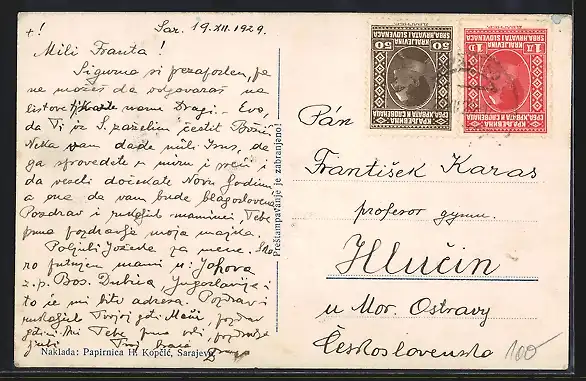 +!
Sar. 19.XII.1929.
Mili Franta!
Sigurno si prezaposlen, pa
ne možeš da odgovaraš na
listove i karte nama Dragi. Evo,
da Ti iz S. zaželim čestit Božić
Neka vam dade mili Isus, da
ga sprovedete u miru i sreći i
da veseli dočekate Novu Godinu
a ona da vam bude blagoslovena
Pozdrav i rukoljub mamici Tebe
puno pozdravlja moja majka.
Poljubi Jožeta za mene. Sko
ro putujem mami u: Johova
z.p. Bos. Dubica, Jugoslavija i
to će mi biti adresa. Pozdrav i
rukoljub Tvojoj
Tebe puno voli, pozdravlja
ljubi Tvoj
Drago
Naklada: Papirnica H. Kopčić, Sarajevo
Preštampavanje je zabranjeno!
50 KRALJEVINA 50
SRBA, HRVATA I SLOVENACA
КРАЉЕВИНА
СРБА, ХРВАТА И СЛОВЕНАЦА
1D KRALJEVINA 1Д
SRBA, HRVATA I SLOVENACA
КРАЉЕВИНА
СРБА, ХРВАТА И СЛОВЕНАЦА
Pán
František Karas
profesor gymn.
Hlučin
u Mor. Ostravy
Československo
100